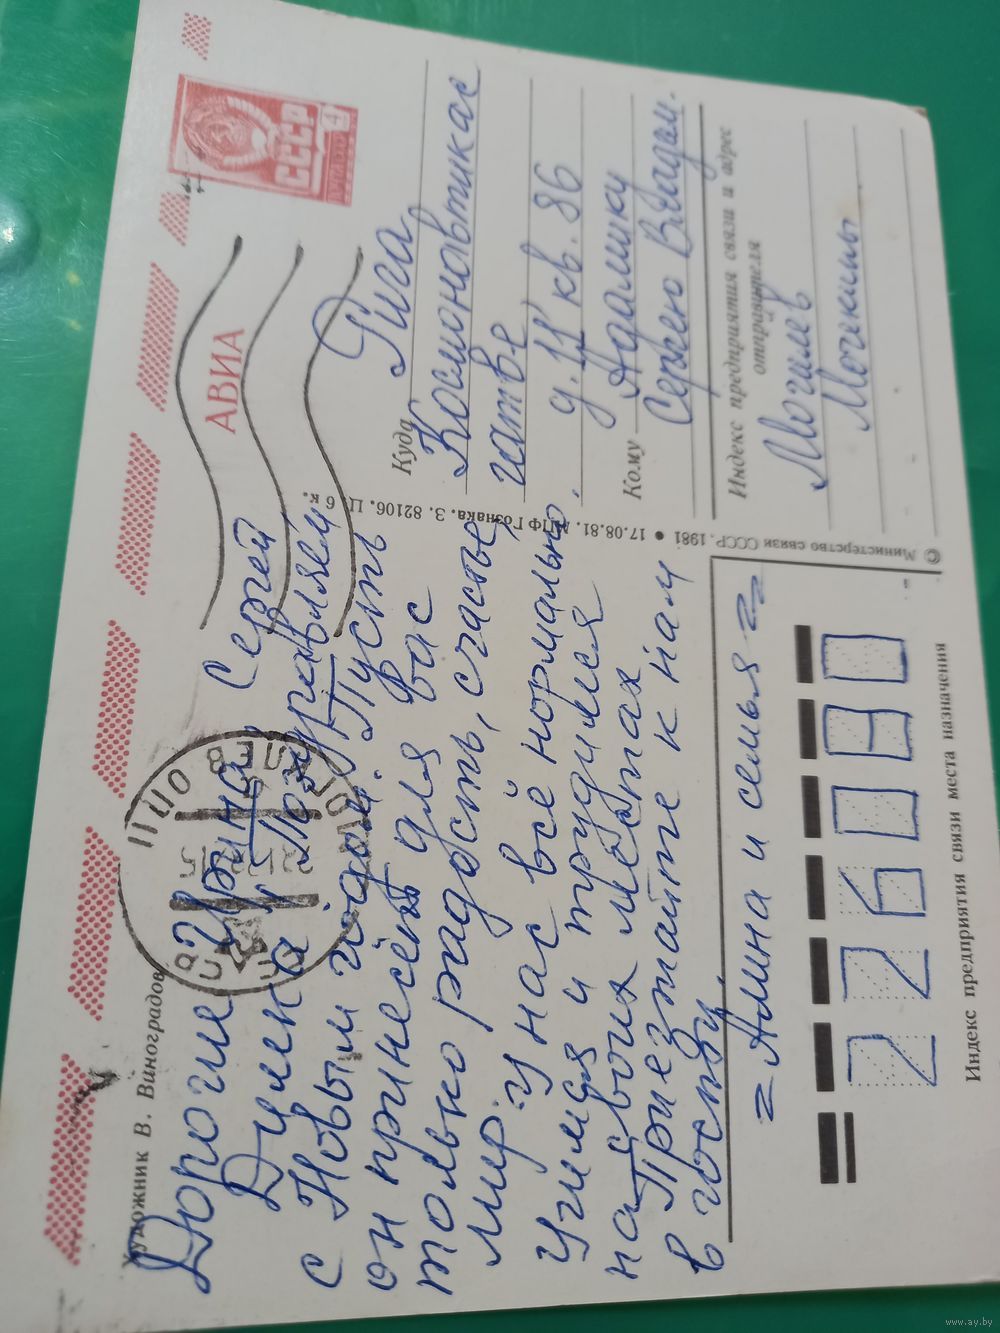 Художник В. Виноградов
Дорогие Ирина, Сергей
Димка! Поздравляем
с Новым годом! Пусть
он принесёт для вас
только радость, счастье,
мир. У нас всё нормально.
Учимся и трудимся
на своих местах
Приезжайте к нам
в гости.
= Алина и семья =
226080
Индекс предприятия связи места назначения
© Министерство связи СССР. 1981 • 17.08.81. МПФ Гознака. З. 82106. Ц. 6 к.
СССР
ПОЧТА
4
АВИА
Куда Рига
Космонавтикас
гатве
д. 11 кв. 86
Кому Адамику
Сергею Владим.
Индекс предприятия связи и адрес
отправителя
Могилев
Мочекины
www.ay.by